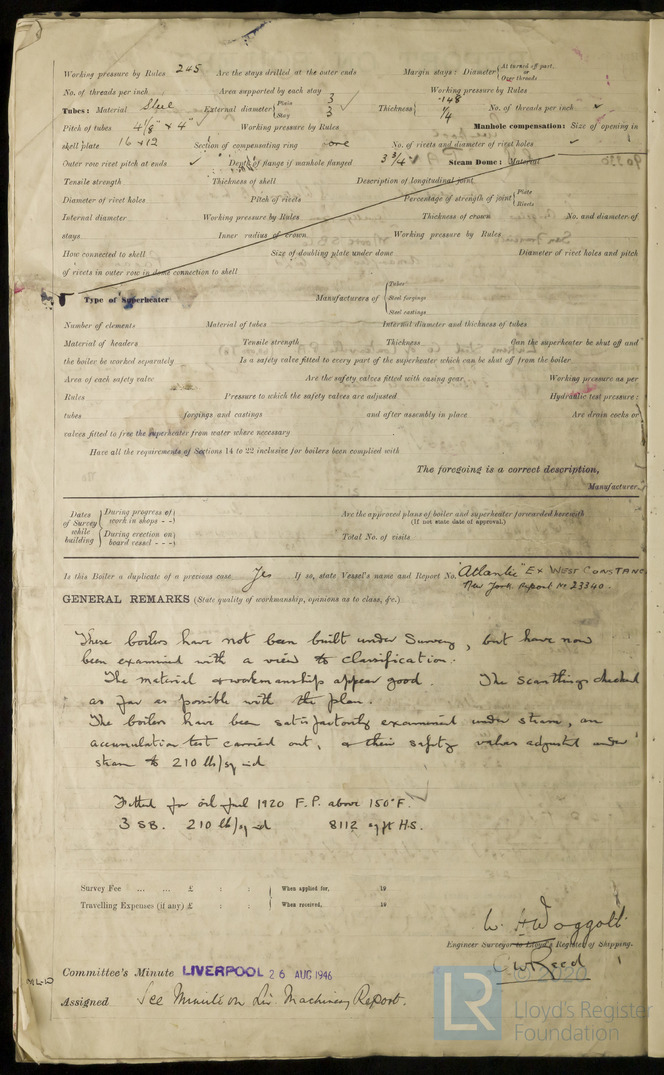 Working pressure by Rules 245 Are the stays drilled at the outer ends Margin stays: Diameter { At turned off part, or Over threads
No. of threads per inch Area supported by each stay Working pressure by Rules
Tubes: Material Steel External diameter { Plain 3 Stay 3 ✓ Thickness { .148 1/4 No. of threads per inch ✓
Pitch of tubes 4 1/8" × 4" ✓ Working pressure by Rules Manhole compensation: Size of opening in
shell plate 16 × 12 Section of compensating ring No. of rivets and diameter of rivet holes ✓
Outer row rivet pitch at ends ✓ Depth of flange if manhole flanged 3 3/4" Steam Dome: Material
Tensile strength Thickness of shell Description of longitudinal joint
Diameter of rivet holes Pitch of rivets Percentage of strength of joint { Plate Rivets
Internal diameter Working pressure by Rules Thickness of crown No. and diameter of
stays Inner radius of crown Working pressure by Rules
How connected to shell Size of doubling plate under dome Diameter of rivet holes and pitch
of rivets in outer row in dome connection to shell
Type of Superheater Manufacturers of { Tubes Steel forgings Steel castings
Number of elements Material of tubes Internal diameter and thickness of tubes
Material of headers Tensile strength Thickness Can the superheater be shut off and
the boiler be worked separately Is a safety valve fitted to every part of the superheater which can be shut off from the boiler
Area of each safety valve Are the safety valves fitted with easing gear Working pressure as per
Rules Pressure to which the safety valves are adjusted Hydraulic test pressure:
tubes forgings and castings and after assembly in place Are drain cocks or
valves fitted to free the superheater from water where necessary
Have all the requirements of Sections 14 to 22 inclusive for boilers been complied with
The foregoing is a correct description,
Manufacturer.
Dates of Survey while building { During progress of work in shops - - } Are the approved plans of boiler and superheater forwarded herewith (If not state date of approval.)
{ During erection on board vessel - - - } Total No. of visits
Is this Boiler a duplicate of a previous case Yes If so, state Vessel's name and Report No. "Atlantic" Ex West Constance
New York Report No 23340.
GENERAL REMARKS (State quality of workmanship, opinions as to class, &c.)
These boilers have not been built under Survey, but have now
been examined with a view to classification.
The material & workmanship appear good. The scantlings checked
as far as possible with the plan.
The boilers have been satisfactorily examined under steam, an
accumulation test carried out, & their safety valves adjusted under
steam to 210 lb/sq.in
Fitted for oil fuel 1920 F.P. above 150°F. ✓
3 S.B. 210 lb/sq.in 8112 sq ft H.S.
Survey Fee ... ... £ : : { When applied for, 19
Travelling Expenses (if any) £ : : { When received, 19
Engineer Surveyor to Lloyd's Register of Shipping.
C.W. Reed
Committee's Minute LIVERPOOL 26 AUG 1946
Assigned See Minute on Liv. Machinery Report.
© 2020
LR
Lloyd's Register
Foundation